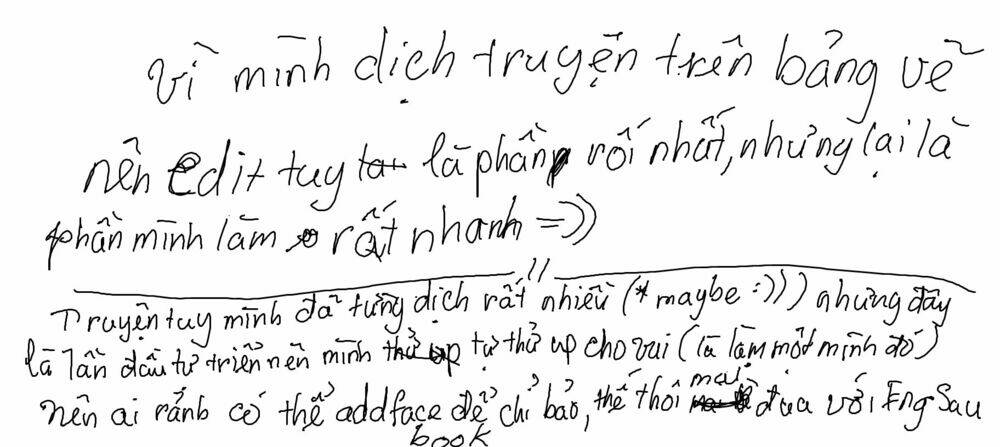 vì mình dịch truyện trên bảng vẽ
nên edit tuy là phần rối nhất, nhưng lại là
phần mình làm rất nhanh =))
//
Truyện tuy mình đã từng dịch rất nhiều (*maybe :))) nhưng đây
là lần đầu tự triển nên mình tự thử up cho vui (là làm một mình đó)
nên ai rảnh có thể add face book để chỉ bảo, thế thôi mai đua với Eng Sau